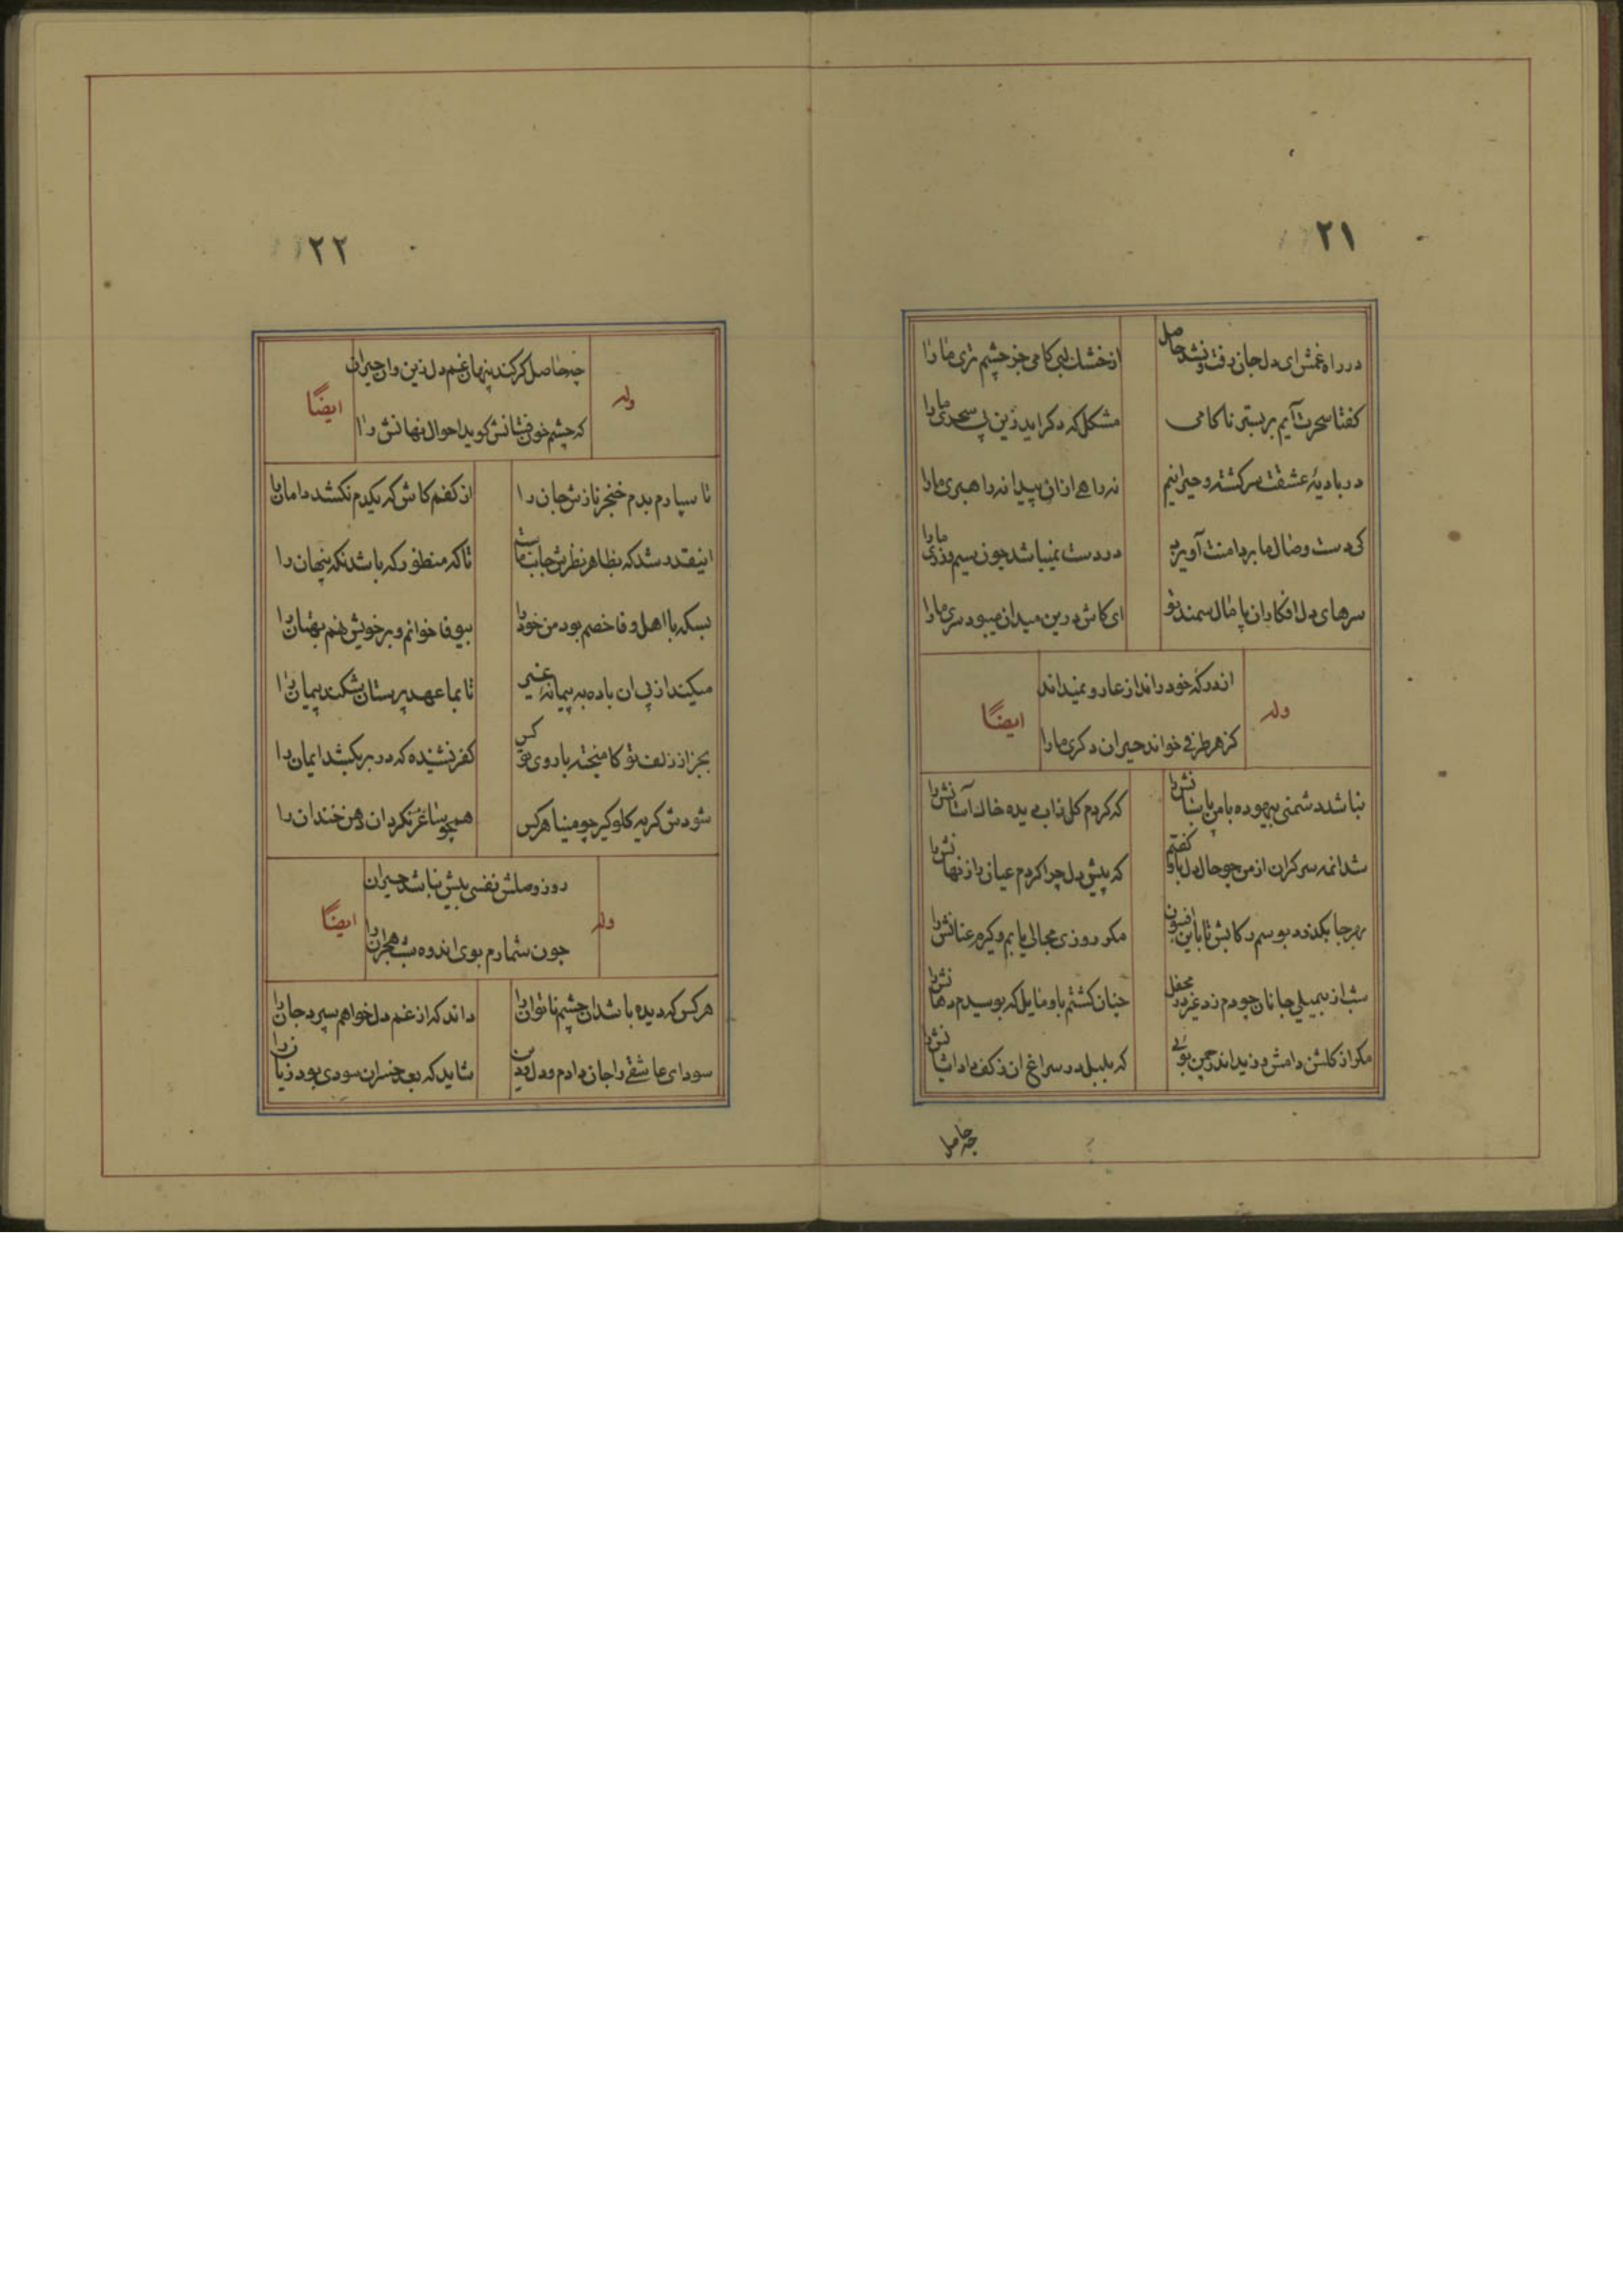 ۲۱
در راه غمش ای دل جان رفت و نشد حاصل
از خشک لبی کامی جز چشم تری ما را
کفتا سحرت آیم بر بستر ناکامی
مشکل که دکر اید زین پی سحری ما را
در بادیهٔ عشقت سرکشته و حیرانیم
نه راهی ازان پیدا نه راهبری ما را
کی دست وصال ما بر دامنت آویزد
در دست نمیباشد چون سیم و زری ما را
سرهای دل افکاران پامال سمند تو
ای کاش درین میدان میبود سری ما را
وله
از درکه خود راند از عار و نمیداند
کز هر طرفی خواند حیران دکری ما را
ایضاً
نباشد دشمنی بیهوده با من پاسبانش را
که کردم کل زاب دیده خاک آستانش را
شد انمه سرکران از من چو حال دل باو کفتم
که پیش دل چرا کردم عیان راز نهانش را
بهر جا بکذرد بوسم رکابش تا باین افسون
مکر روزی مجالی یابم و کیرم عنانش را
شب از بیمیلی جانان چو دم زد غیر در محفل
چنان کشتم باو مایل که بوسیدم دهانش را
مکر از کلشن دامش وزید اندر چمن بوئی
که بلبل در سراغ ان ز کف داد اشیانش را
چه حاصل
۲۲
چه حاصل کر کند پنهان غم دل زین و ان حیران
وله
که چشم خون فشانش کوید احوال نهانش را
ایضاً
تا سپارم بدم خنجر نازش جان را
از کفم کاش که یکدم نکشد دامان را
اینقدر شد که بظاهر نظرش جانب ماست
تا که منظور که باشد نکه پنهان را
بسکه با اهل وفا خصم بود من خود را
بیوفا خوانم و بر خویش نهم بهتان را
میکند از پی ان باده به پیمانهٔ غیر
تا بما عهد پرستان شکند پیمان را
بجز از زلف تو کامیخته با روی تو کس
کفر نشنیده که در بر بکشد ایمان را
شودش کریه کلوکیر چو مینا هر کس
همچو ساغر نکرد ان دهن خندان را
وله
روز وصلش نفسی بیش نباشد حیران
چون شمارم بوی اندوه شب هجران را
ایضاً
هر کس که دیده باشد ان چشم ناتوان را
داند که از غم دل خواهم سپرد جان را
سودای عاشقی را جان دادم و دل و دین
شاید که بعد خسران سودی بود زیان را